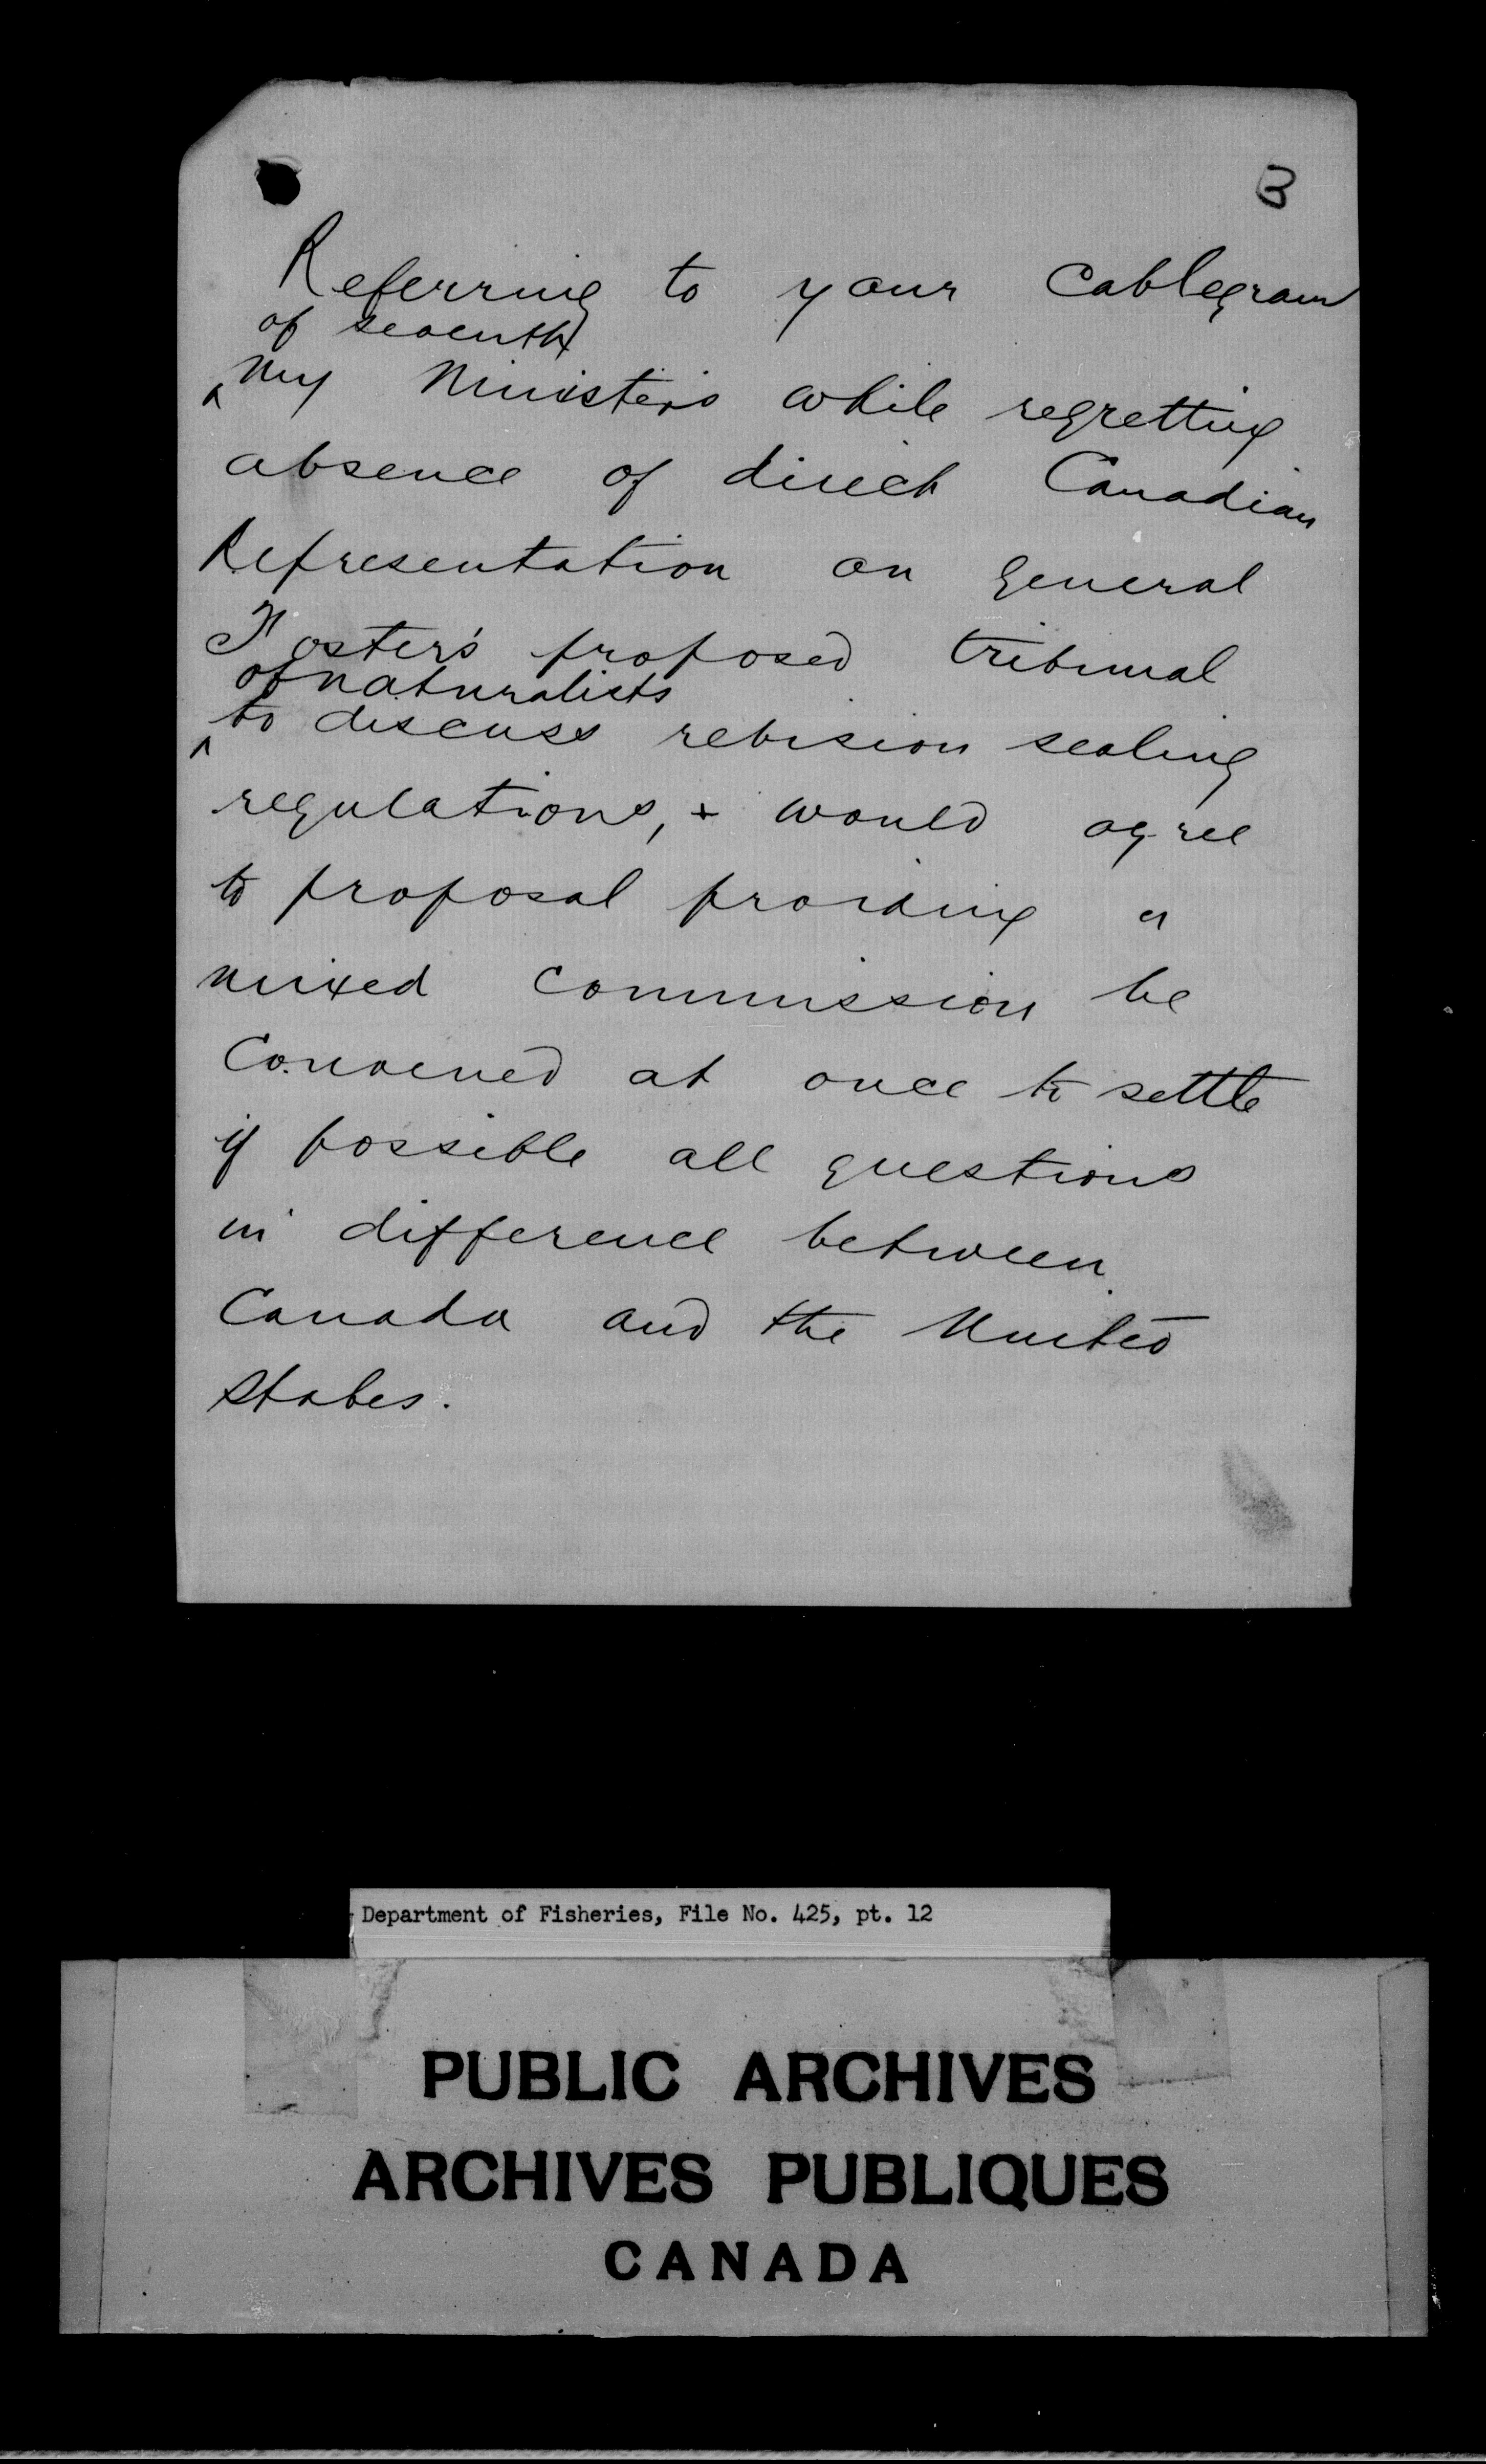 3
Referring to your Cablegram
of seventh
^ my Ministers while regretting
absence of direct Canadian
Representation on general
Foster's proposed tribunal
of naturalists
^ to discuss revision sealing
regulations, + would agree
to proposal providing a
mixed Commission be
Convened at once to settle
if possible all questions
in difference between
Canada and the United
States.
Department of Fisheries, File No. 425, pt. 12
PUBLIC ARCHIVES
ARCHIVES PUBLIQUES
CANADA